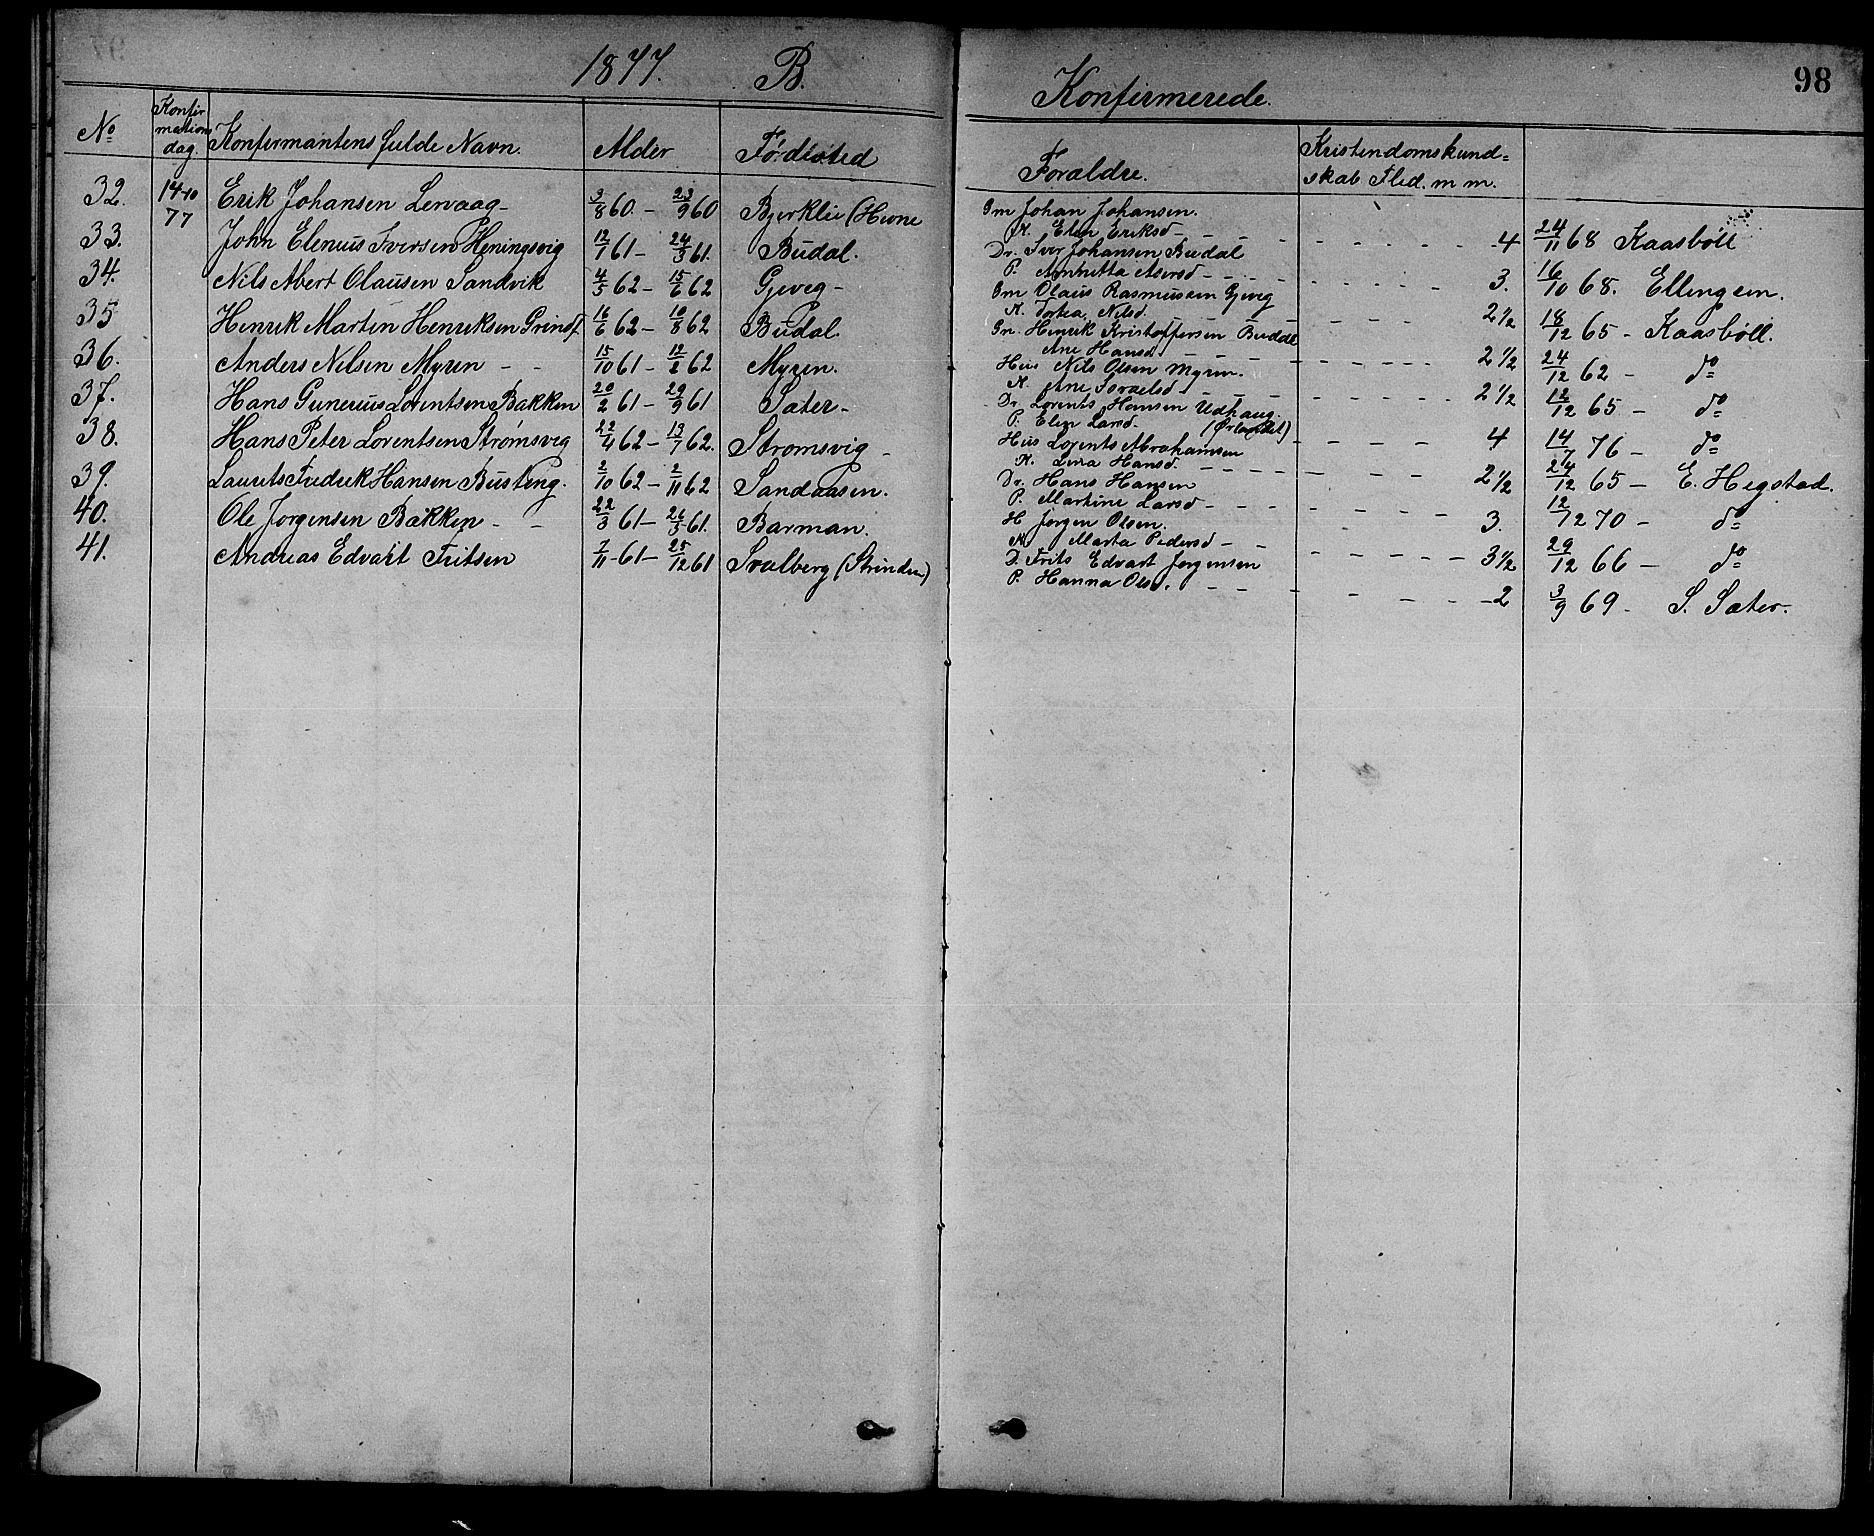 1877. B.
Konfirmerede. 98
No Konfirmations dag. Konfirmantens fulde Navn. Alder Fødested Forældre. Kristendomskundskab Flid. m m.
32. 14-10 77 Erik Johansen Lervaag - 3/8 60 - 23/9 60 Bjerklie (Hevne
Gm Johan Johansen.
K. Elen Eriksd - 4 24/11 68 Kaasböll
33. John Elenius Iversen Heningsvig 12/1 61 - 24/3 61. Budal.
Dr. Iver Johansen Budal
P. Anhitta Asersd - 3. 16/10 68. Ellingsen.
34. Nils Abert Olausen Sandvik 4/5 62 - 15/6 62 Gjeveg -
Gm Olaus Rasmussen Gjeveg
K. Nilsd. 2 1/2 18/12 65 - Kaasböll.
35 Henrik Martin Henriksen Grindf. 16/6 62 - 10/8 62 Budal.
Gr. Henrik Kristoffersen Budal
Ane Hansd. - 2 1/2 24/12 62 - do
36. Anders Nilsen Myren - - 15/10 61 - 12/2 62 Myren.
Hus Nils Olsen Myren.
K. Ane Israelsd - 2 1/2 12/12 65 - do
37. Hans Gunerius Lorentsen Bakken 20/2 61 - 29/9 61 Sæter -
Dr. Lorents Hansen Udhaug.
P. Elen Larsd. (Ørlandet) - 4 14/7 76 - do
38. Hans Peter Lorentsen Strømsvig 22/4 62 - 13/7 62. Strømsvig -
Hus Lorents Abrahamsen
K. Lina Hansd. - 2 1/2 24/12 65 - E. Hegstad.
39. Laurits Fredrik Hansen Busteng. 2/10 62 - 2/11 62 Sandaasen.
Dr. Hans Hansen
P. Martine Larsd - 3. 12/12 70 - do
40. Ole Jorgensen Bakken - - 22/3 61 - 26/5 61. Barman.
H Jorgen Olsen.
K. Marta Pedersd - 3 1/2 29/12 66 - do
41. Andreas Edvart Fritsen 7/11 - 61 - 25/12 61 Svalberg (Strinden)
D. Frits Edvart Jorgensen
P. Hanna Olsd. - 2 3/9 69 - S. Sæter.